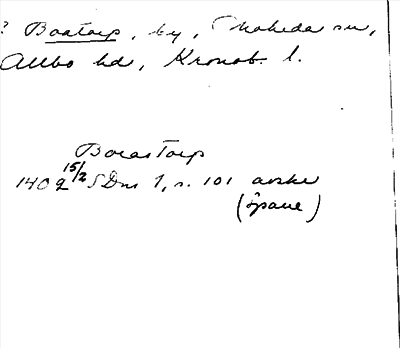 ? Boatorp, by, Moheda sn,
Allbo hd, Kronob. l.
Boeastorp
1409 15/2 SDns 1, s. 101 avskr